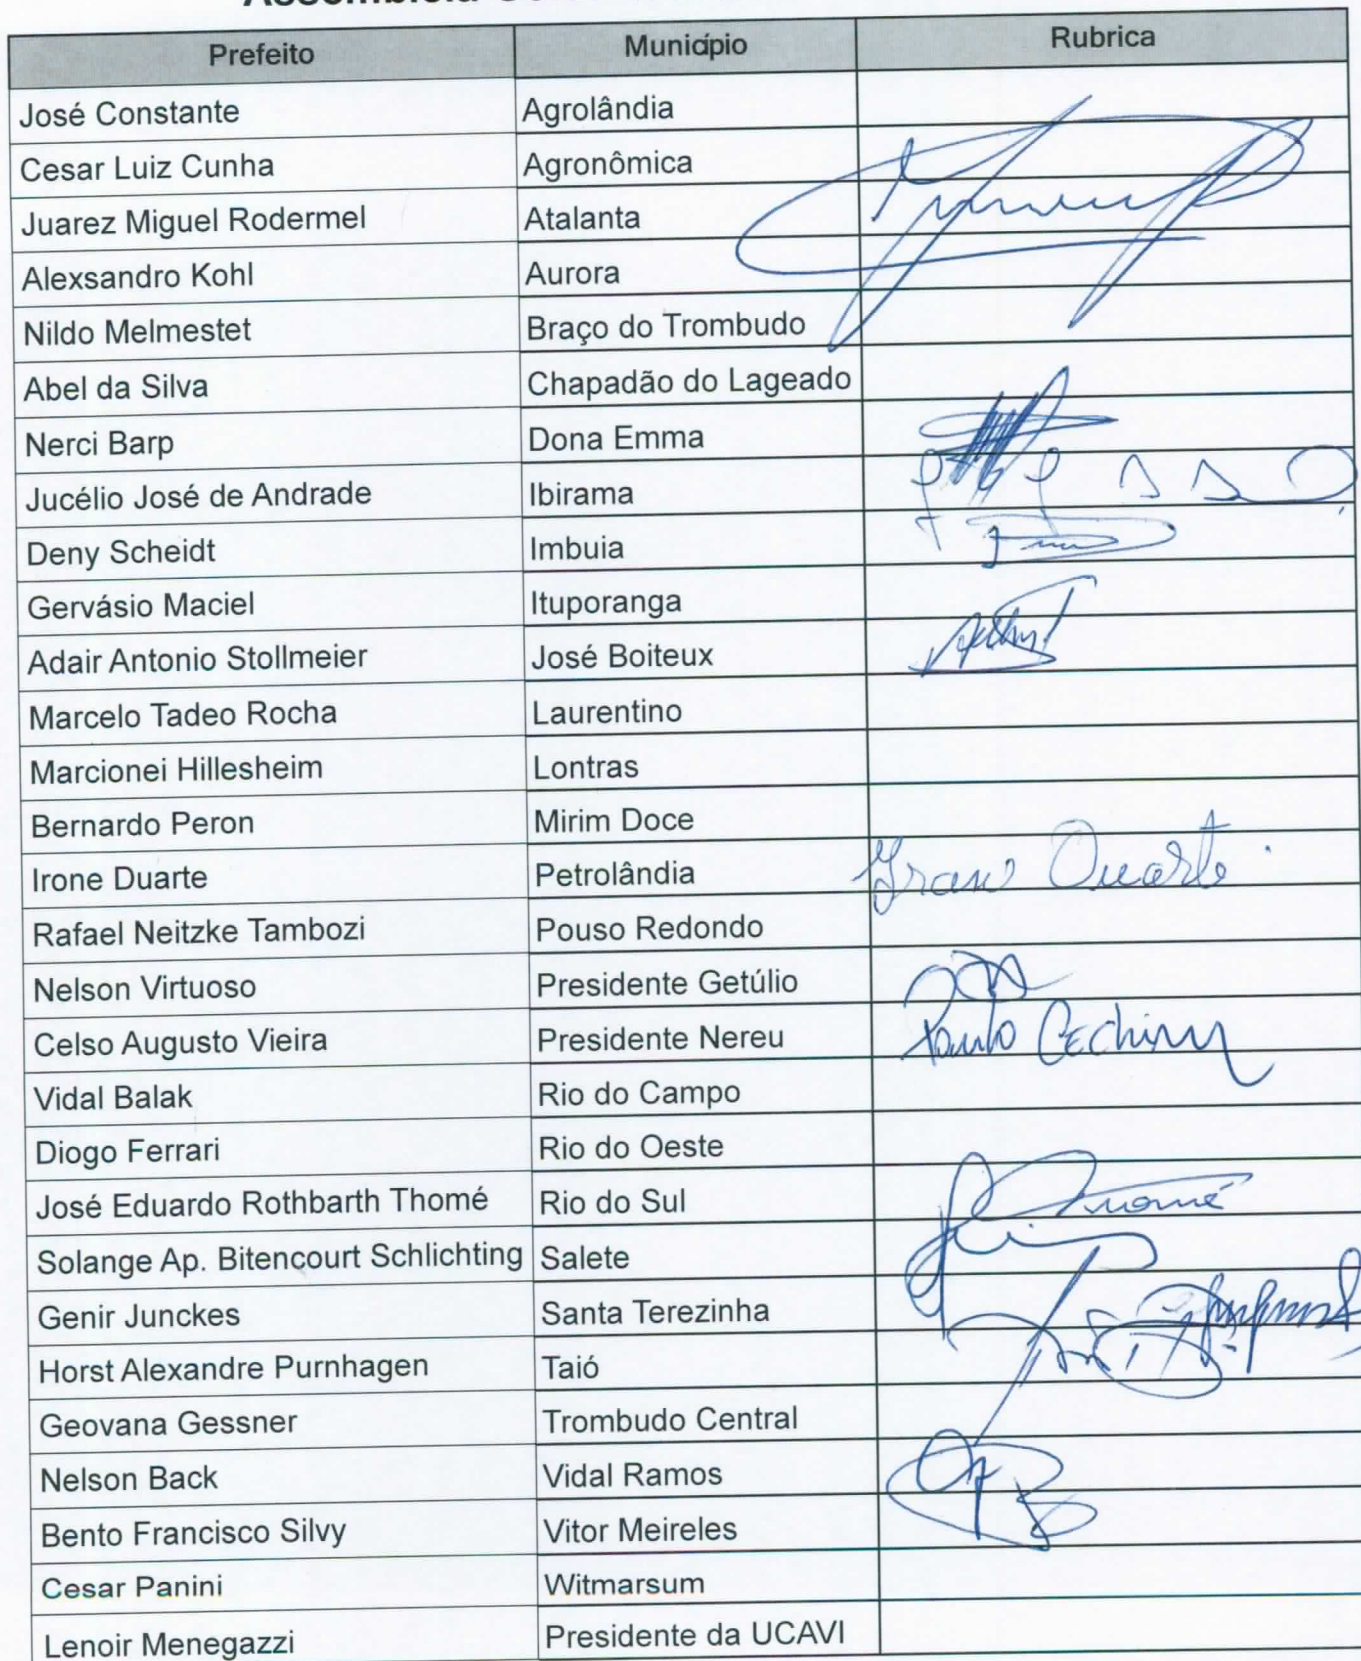 Prefeito Município Rubrica
José Constante Agrolândia
Cesar Luiz Cunha Agronômica
Juarez Miguel Rodermel Atalanta
Alexsandro Kohl Aurora
Nildo Melmestet Braço do Trombudo
Abel da Silva Chapadão do Lageado
Nerci Barp Dona Emma
Jucélio José de Andrade Ibirama
Deny Scheidt Imbuia
Gervásio Maciel Ituporanga
Adair Antonio Stollmeier José Boiteux
Marcelo Tadeo Rocha Laurentino
Marcionei Hillesheim Lontras
Bernardo Peron Mirim Doce
Irone Duarte Petrolândia Duarte
Rafael Neitzke Tambozi Pouso Redondo
Nelson Virtuoso Presidente Getúlio
Celso Augusto Vieira Presidente Nereu Paulo
Vidal Balak Rio do Campo
Diogo Ferrari Rio do Oeste
José Eduardo Rothbarth Thomé Rio do Sul Thomé
Solange Ap. Bitencourt Schlichting Salete
Genir Junckes Santa Terezinha
Horst Alexandre Purnhagen Taió
Geovana Gessner Trombudo Central
Nelson Back Vidal Ramos
Bento Francisco Silvy Vitor Meireles
Cesar Panini Witmarsum
Lenoir Menegazzi Presidente da UCAVI